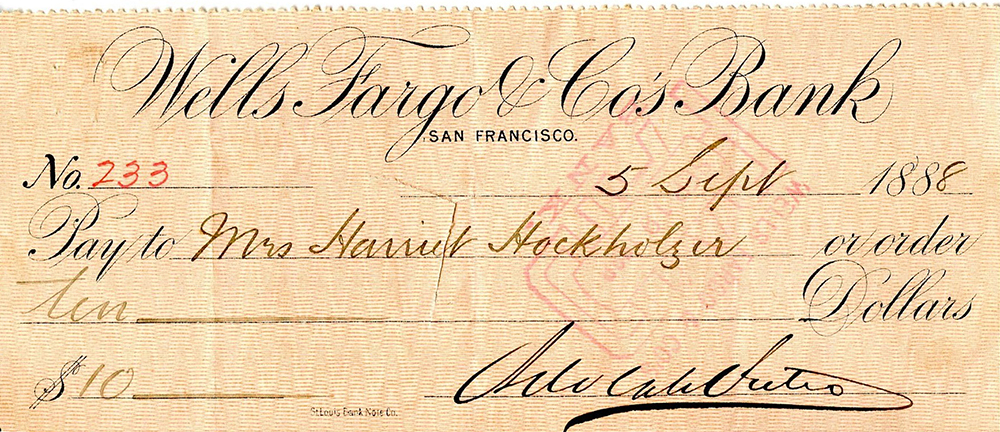 Wells Fargo & Co's Bank
SAN FRANCISCO.
No. 233 5 Sept 1888
Pay to Mrs Harriet Hockholzer or order
ten Dollars
$ 10
St Louis Bank Note Co.